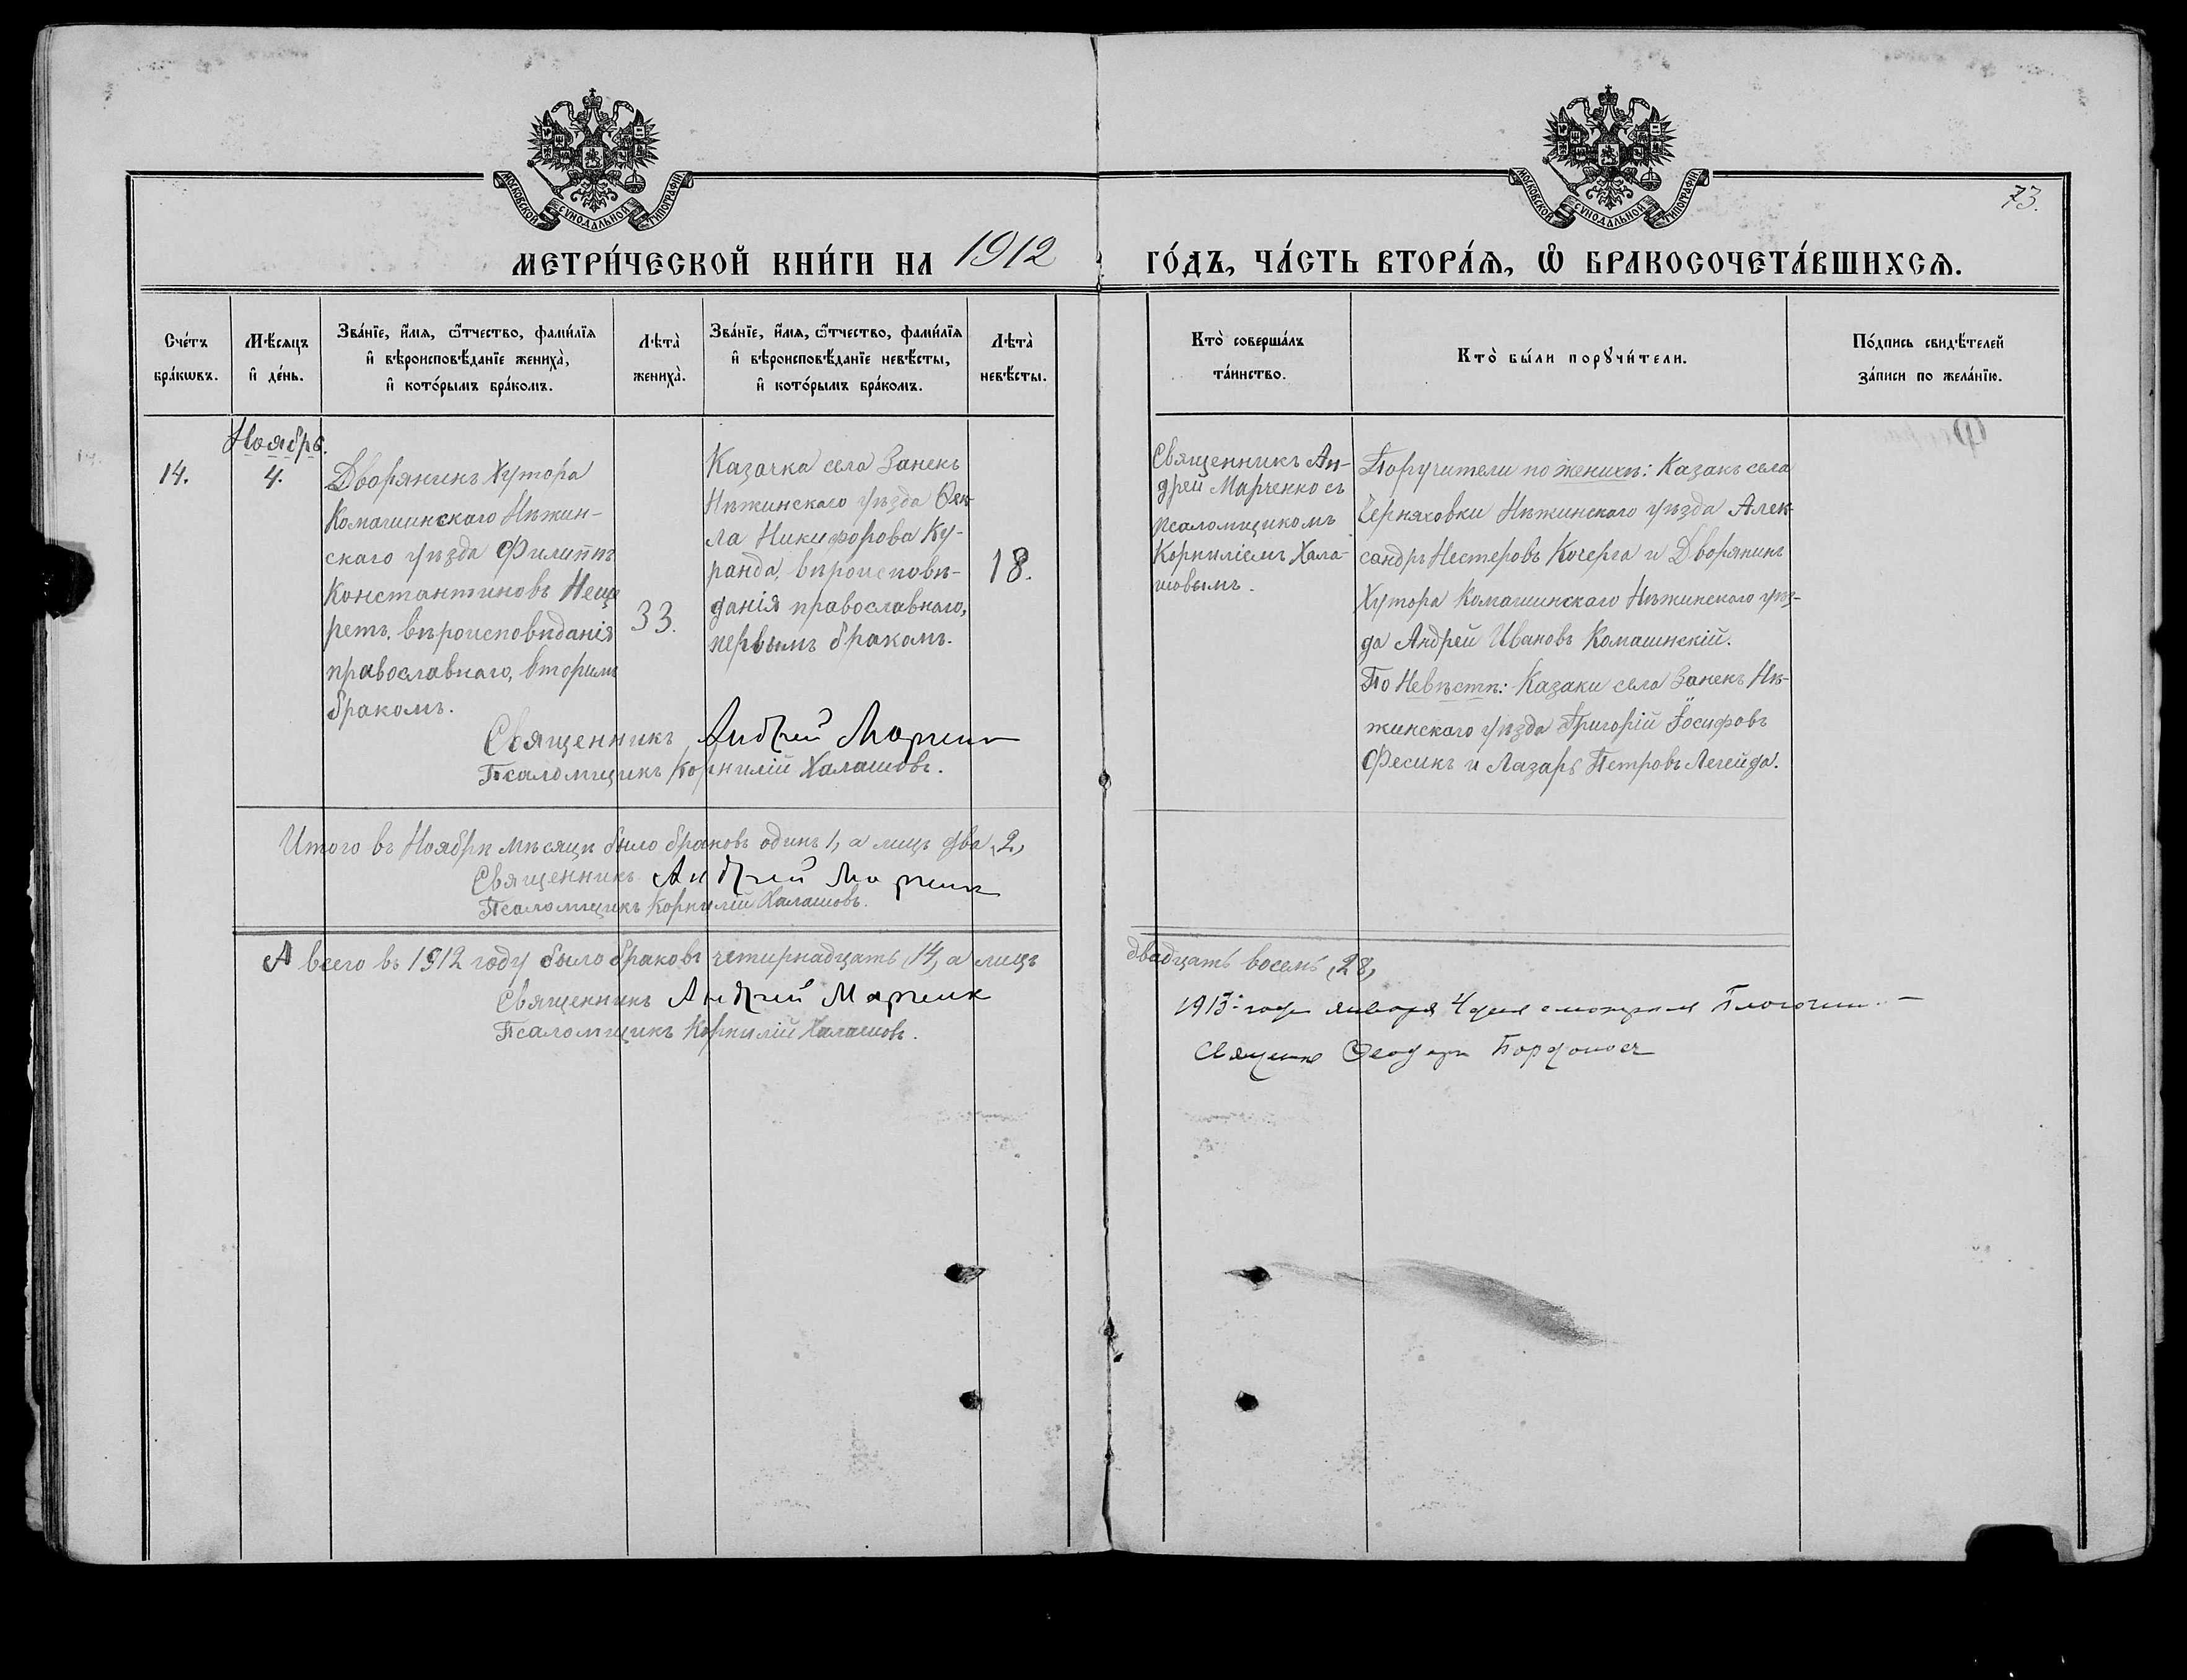 МОСКОВСКОЙ СУНОДАЛЬНОЙ ТИПОГРАФІИ
МОСКОВСКОЙ СУНОДАЛЬНОЙ ТИПОГРАФІИ
73.
МЕТРИ́ЧЕСКОЙ КНИ́ГИ НА 1912 ГО́ДЪ, ЧА́СТЬ ВТОРА́Ѧ, Ѡ БРАКОСОЧЕТА́ВШИХСѦ.
Сче́тъ
бра́кѡвъ.
Мѣ́сяцъ
и҆ де́нь.
Зва́нїе, и҆́мя, ѻ҆́тчество, фами́лїя
и҆ вѣроисповѣ́данїе жениха̀,
и҆ кото́рымъ бра́комъ.
Лѣта̀
жениха̀.
Зва́нїе, и҆́мя, ѻ҆́тчество, фами́лїя
и҆ вѣроисповѣ́данїе невѣ́сты,
и҆ кото́рымъ бра́комъ.
Лѣта̀
невѣ́сты.
Кто̀ соверша́лъ
та́инство.
Кто̀ бы́ли порꙋчи́тели.
По́дпись свидѣ́телей
за́писи по жела́нїю.
14.
Ноябрь.
4.
Дворянинъ Хутора
Комашинскаго Нѣжин-
скаго уѣзда Филиппъ
Константиновъ Неще
ретъ, вѣроисповѣданія
православнаго, вторымъ
бракомъ.
33.
Казачка села Занекъ
Нѣжинскаго уѣзда Ѳек
ла Никифорова Ку-
ранда, вѣроисповѣ-
данія православнаго,
первымъ бракомъ.
18.
Священникъ Ан-
дрей Марченко съ
псаломщикомъ
Корниліемъ Хала-
шовымъ.
Поручители по женихѣ: Казакъ села
Черняховки Нѣжинскаго уѣзда Алек-
сандръ Нестеровъ Кочерга и Дворянинъ
Хутора Комашинскаго Нѣжинскаго уѣз-
да Андрей Ивановъ Комашнскій.
По Невѣстѣ: Казаки села Занекъ Нѣ-
жинскаго уѣзда Григорій Іосифовъ
Фесикъ и Лазарь Петровъ Легейда.
Священникъ Андрей Марченко
Псаломщикъ Корнилій Халашовъ.
Итого въ Ноябрѣ мѣсяцѣ было браковъ одинъ 1, а лицъ два, 2,
Священникъ Андрей Марченко
Псаломщикъ Корнилій Халашовъ.
А всего въ 1912 году было браковъ четырнадцать, 14, а лицъ двадцать восемь, 28,
Священникъ Андрей Марченко
Псаломщикъ Корнилій Халашовъ.
1913 года января 4 дня
Священникъ Ѳеодоръ